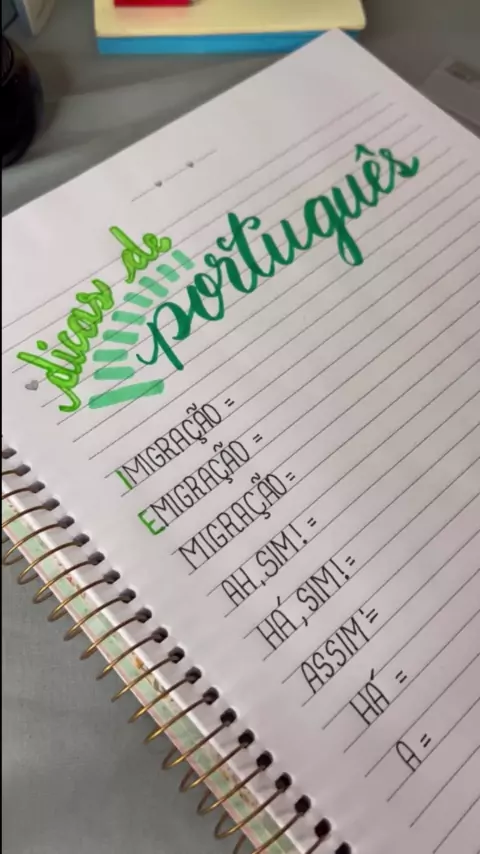 dicas de
português
IMIGRAÇÃO =
EMIGRAÇÃO =
MIGRAÇÃO =
AH, SIM! =
HÁ, SIM! =
ASSIM =
HÁ =
A =